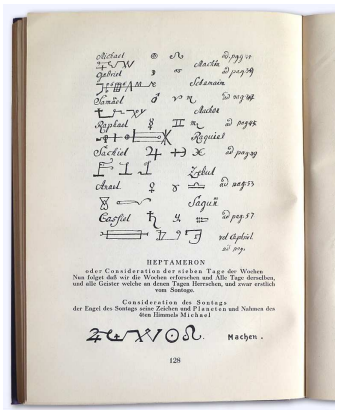 Michael ☉ ♌ ad pag
Machen
Gabriel ad pag 39
Schemaim
Samäel ♂ ♈ ♏ ad pag
Raphael ☿ ♊ ♍ ad pag
Raquiel
Sachiel ♃ ♓ ad pag 49
Zebul
Anael ♀ ♉ ♎ ad pag: 53
Sagun
Cassiel ♄ ad pag. 57
vel Caphriel
ad pag.
HEPTAMERON
oder Consideration der sieben Tage der Wochen
Nun folget daß wir die Wochen erforschen und Alle Tage derselben,
und alle Geister welche an denen Tagen Herrschen, und zwar erstlich
vom Sontage.
Consideration des Sontags
der Engel des Sontags seine Zeichen und Planeten und Nahmen des
4ten Himmels Michael
☉ ♌. Machen.
128